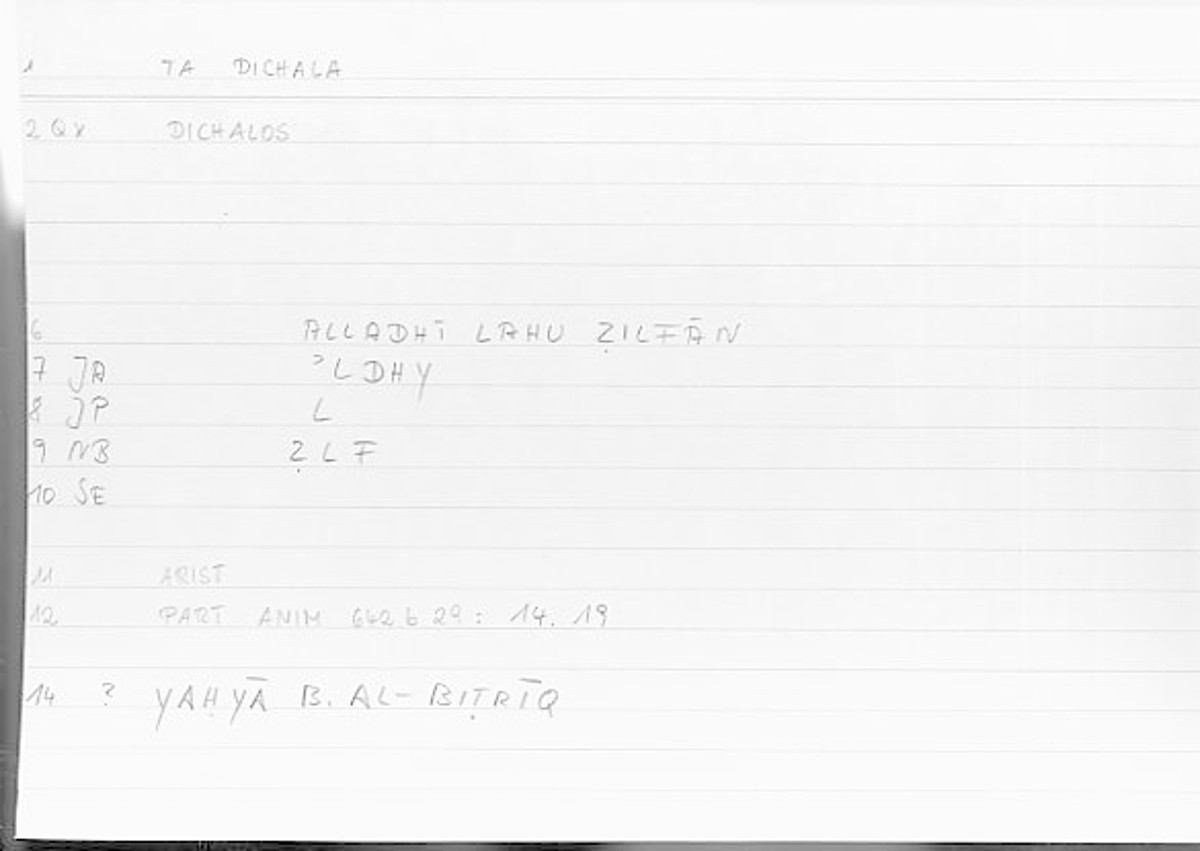 1 TA DICHALA
2 QX DICHALOS
6 ALLADHĪ LAHU ẒILFĀN
7 JA ʾLDHY
8 JP L
9 NB ẒLF
10 SE
11 ARIST
12 PART ANIM 642 b 29: 14. 19
14 ? YAḤYĀ B. AL-BIṬRĪQ